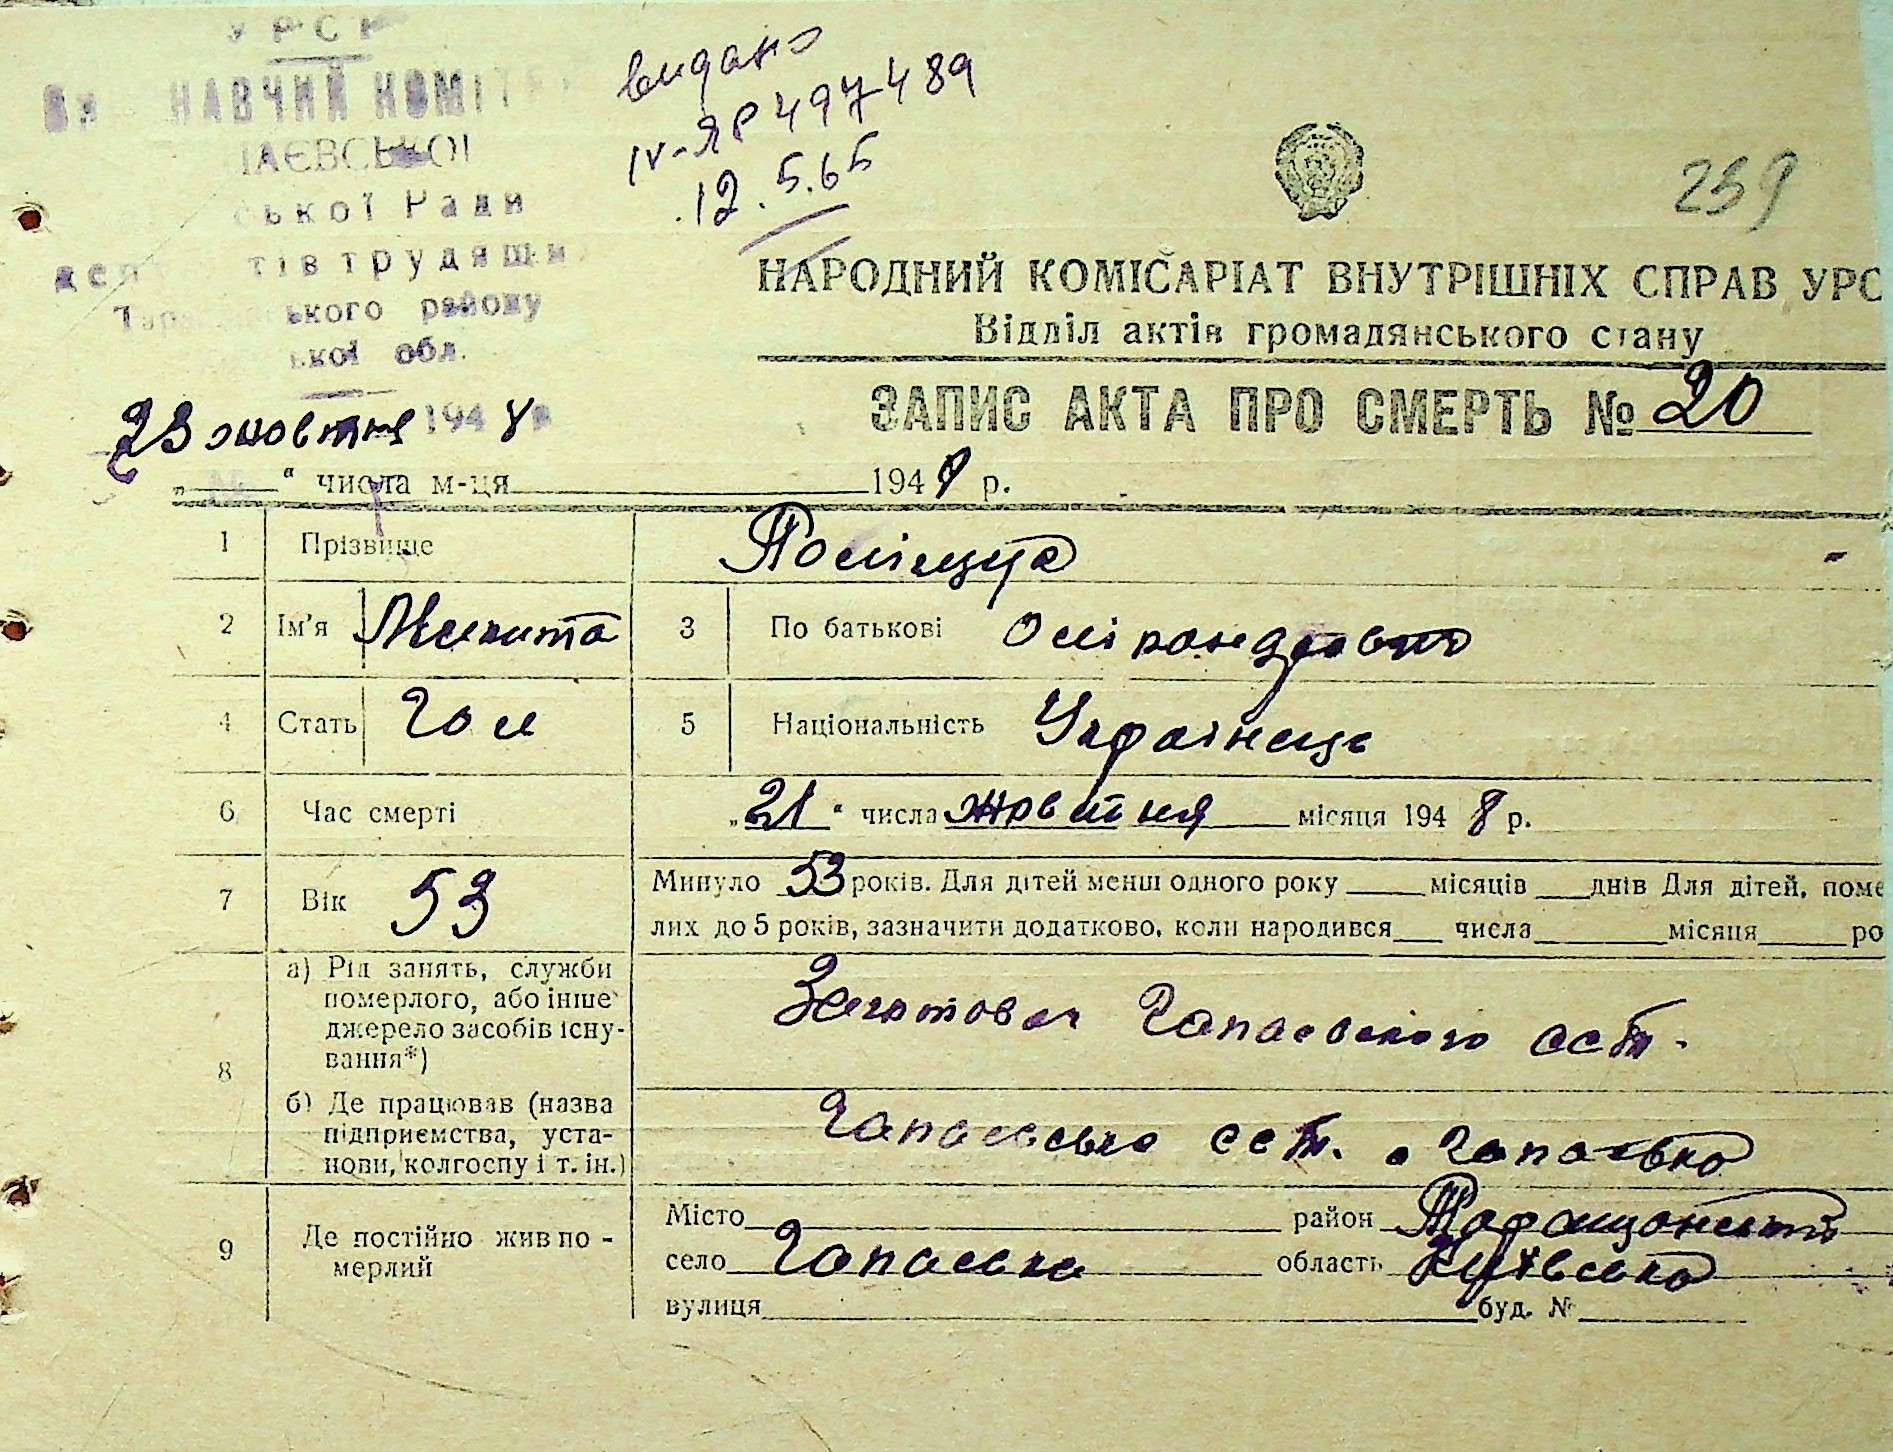 УРСР
НАВЧИЙ КОМІТ
АЄВСЬКОЇ
ської Ради
деп тів трудящи
Тара ького району
ької обл.
видано
IV-ЯР 497489
12.5.65
259
НАРОДНИЙ КОМІСАРІАТ ВНУТРІШНІХ СПРАВ УРС
Відділ актів громадянського стану
ЗАПИС АКТА ПРО СМЕРТЬ № 20
23 жовтня 1948
„ “ числа м-ця 1948 р.
1 Прізвище
2 Ім’я Микита 3 По батькові
4 Стать Чол 5 Національність Українець
6 Час смерті „21“ числа жовтня місяця 1948 р.
7 Вік 53 Минуло 53 років. Для дітей менш одного року місяців днів Для дітей, поме
лих до 5 років, зазначити додатково, коли народився числа місяця ро
8 а) Рід занять, служби
померлого, або інше
джерело засобів існу-
вання*)
Чапаєвського сст.
б) Де працював (назва
підприємства, уста-
нови, колгоспу і т. ін.)
Чапаєвське сст. Чапаєвка
9 Де постійно жив по-
мерлий
Місто район Таращанський
село Чапаєвка область Київська
вулиця буд. №